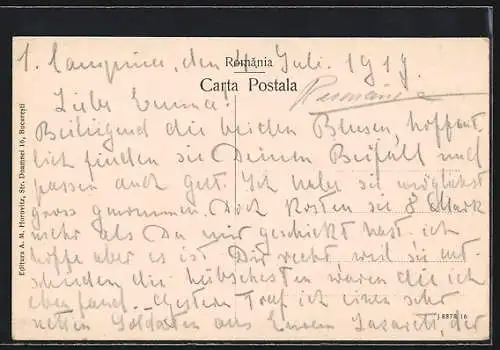 România
Carta Postala
1. Campina, den 4. Juli. 1919.
Rumänien
Liebe Emma!
Beiliegend die beiden Blusen, hoffent-
lich finden sie Deinen Beifall und
passen auch gut. Ich habe sie möglichst
gross genommen. Doch kosten sie 8 Mark
mehr als Du mir geschickt hast. ich
hoffe aber es ist Dir recht weil sie ent-
schieden die hübschesten waren die ich
eben fand. Gestern traf ich einen sehr
netten Soldaten aus Eurem Lazarett, der
Editura A. M. Horovitz, Str. Doamnei 16, București
18878 16